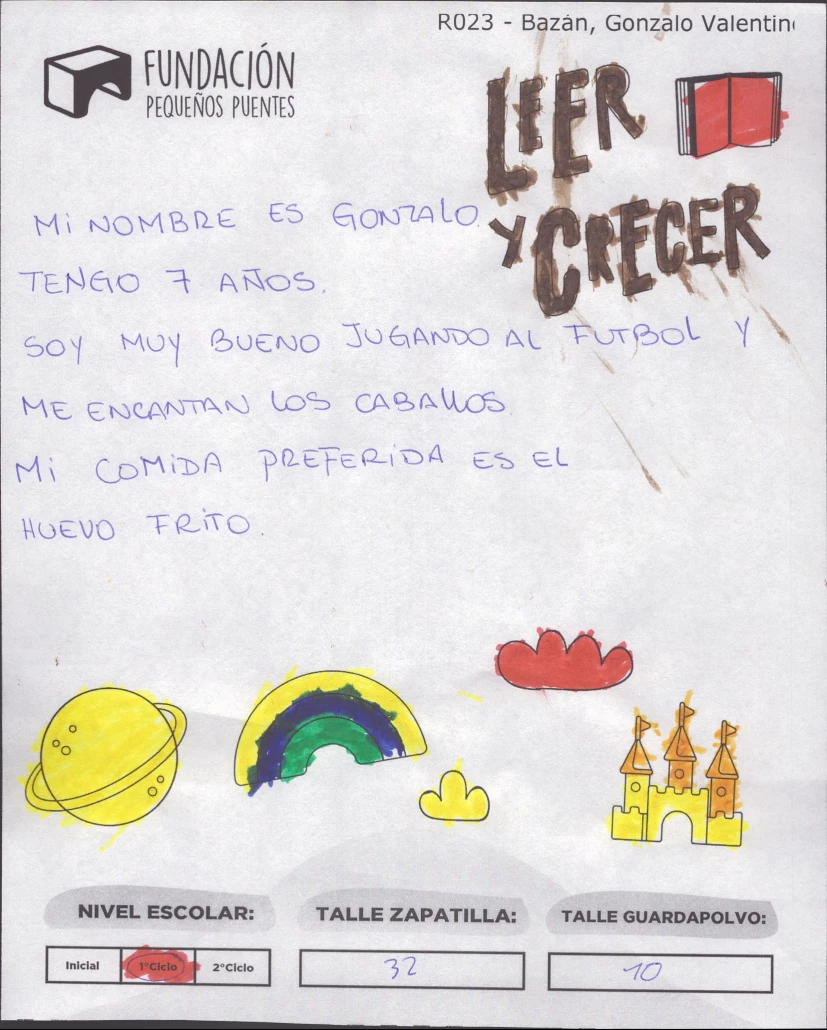 R023 - Bazán, Gonzalo Valentin
FUNDACIÓN
PEQUEÑOS PUENTES
LEER
Y CRECER
Mi NOMBRE ES GONZALO.
TENGO 7 AÑOS.
SOY MUY BUENO JUGANDO AL FUTBOL Y
ME ENCANTAN LOS CABALLOS.
Mi COMiDA PREFERiDA ES EL
HUEVO FRiTO.
NIVEL ESCOLAR:
TALLE ZAPATILLA:
TALLE GUARDAPOLVO:
Inicial 1°Ciclo 2°Ciclo
32
10